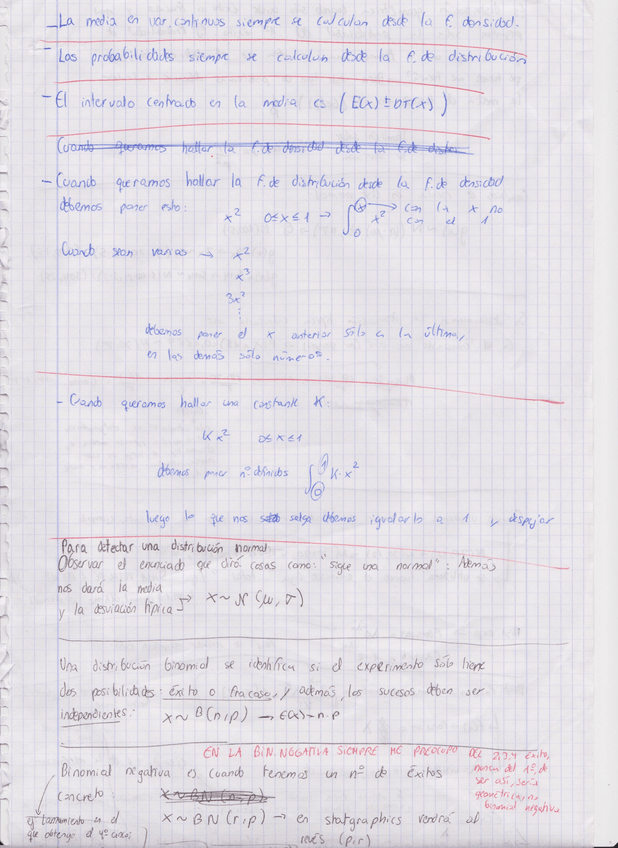 - La media en var. continuas siempre se calculan desde la f. densidad.
- Las probabilidades siempre se calculan desde la f. de distribución
- El intervalo centrado en la media es (E(x) ± DT(x))
Cuando queramos hallar la f. de densidad desde la f. de distri
- Cuando queramos hallar la f. de distribución desde la f. de densidad
debemos poner esto:
x² 0≤x≤1 → ∫₀ˣ x² → con la x no
con el 1
Cuando sean varias → x²
x³
3x²
⋮
debemos poner el x anterior sólo en la última,
en las demás sólo números.
- Cuando queramos hallar una constante K:
Kx² 0≤x≤1
debemos poner nº definidos ∫₀¹ K·x²
luego lo que nos salga debemos igualarlo a 1 y despejar
Para detectar una distribución normal
Observar el enunciado que dirá cosas como: "sigue una normal": Además
nos dará la media
y la desviación típica → X~N(μ,σ)
Una distribución binomial se identifica si el experimento sólo tiene
dos posibilidades: éxito o fracaso, y además, los sucesos deben ser
independientes: X~B(n,p) → E(x)=n·p
EN LA BIN. NEGATIVA SIEMPRE ME PREOCUPO DEL 2,3,4 éxito,
nunca del 1º, de
ser así, sería
geométrica, no
binomial negativa
Binomial negativa es cuando tenemos un nº de éxitos
concreto: X~BN(n,p)
X~BN(r,p) → en statgraphics vendrá al
revés (p,r)
en el
que obtengo el